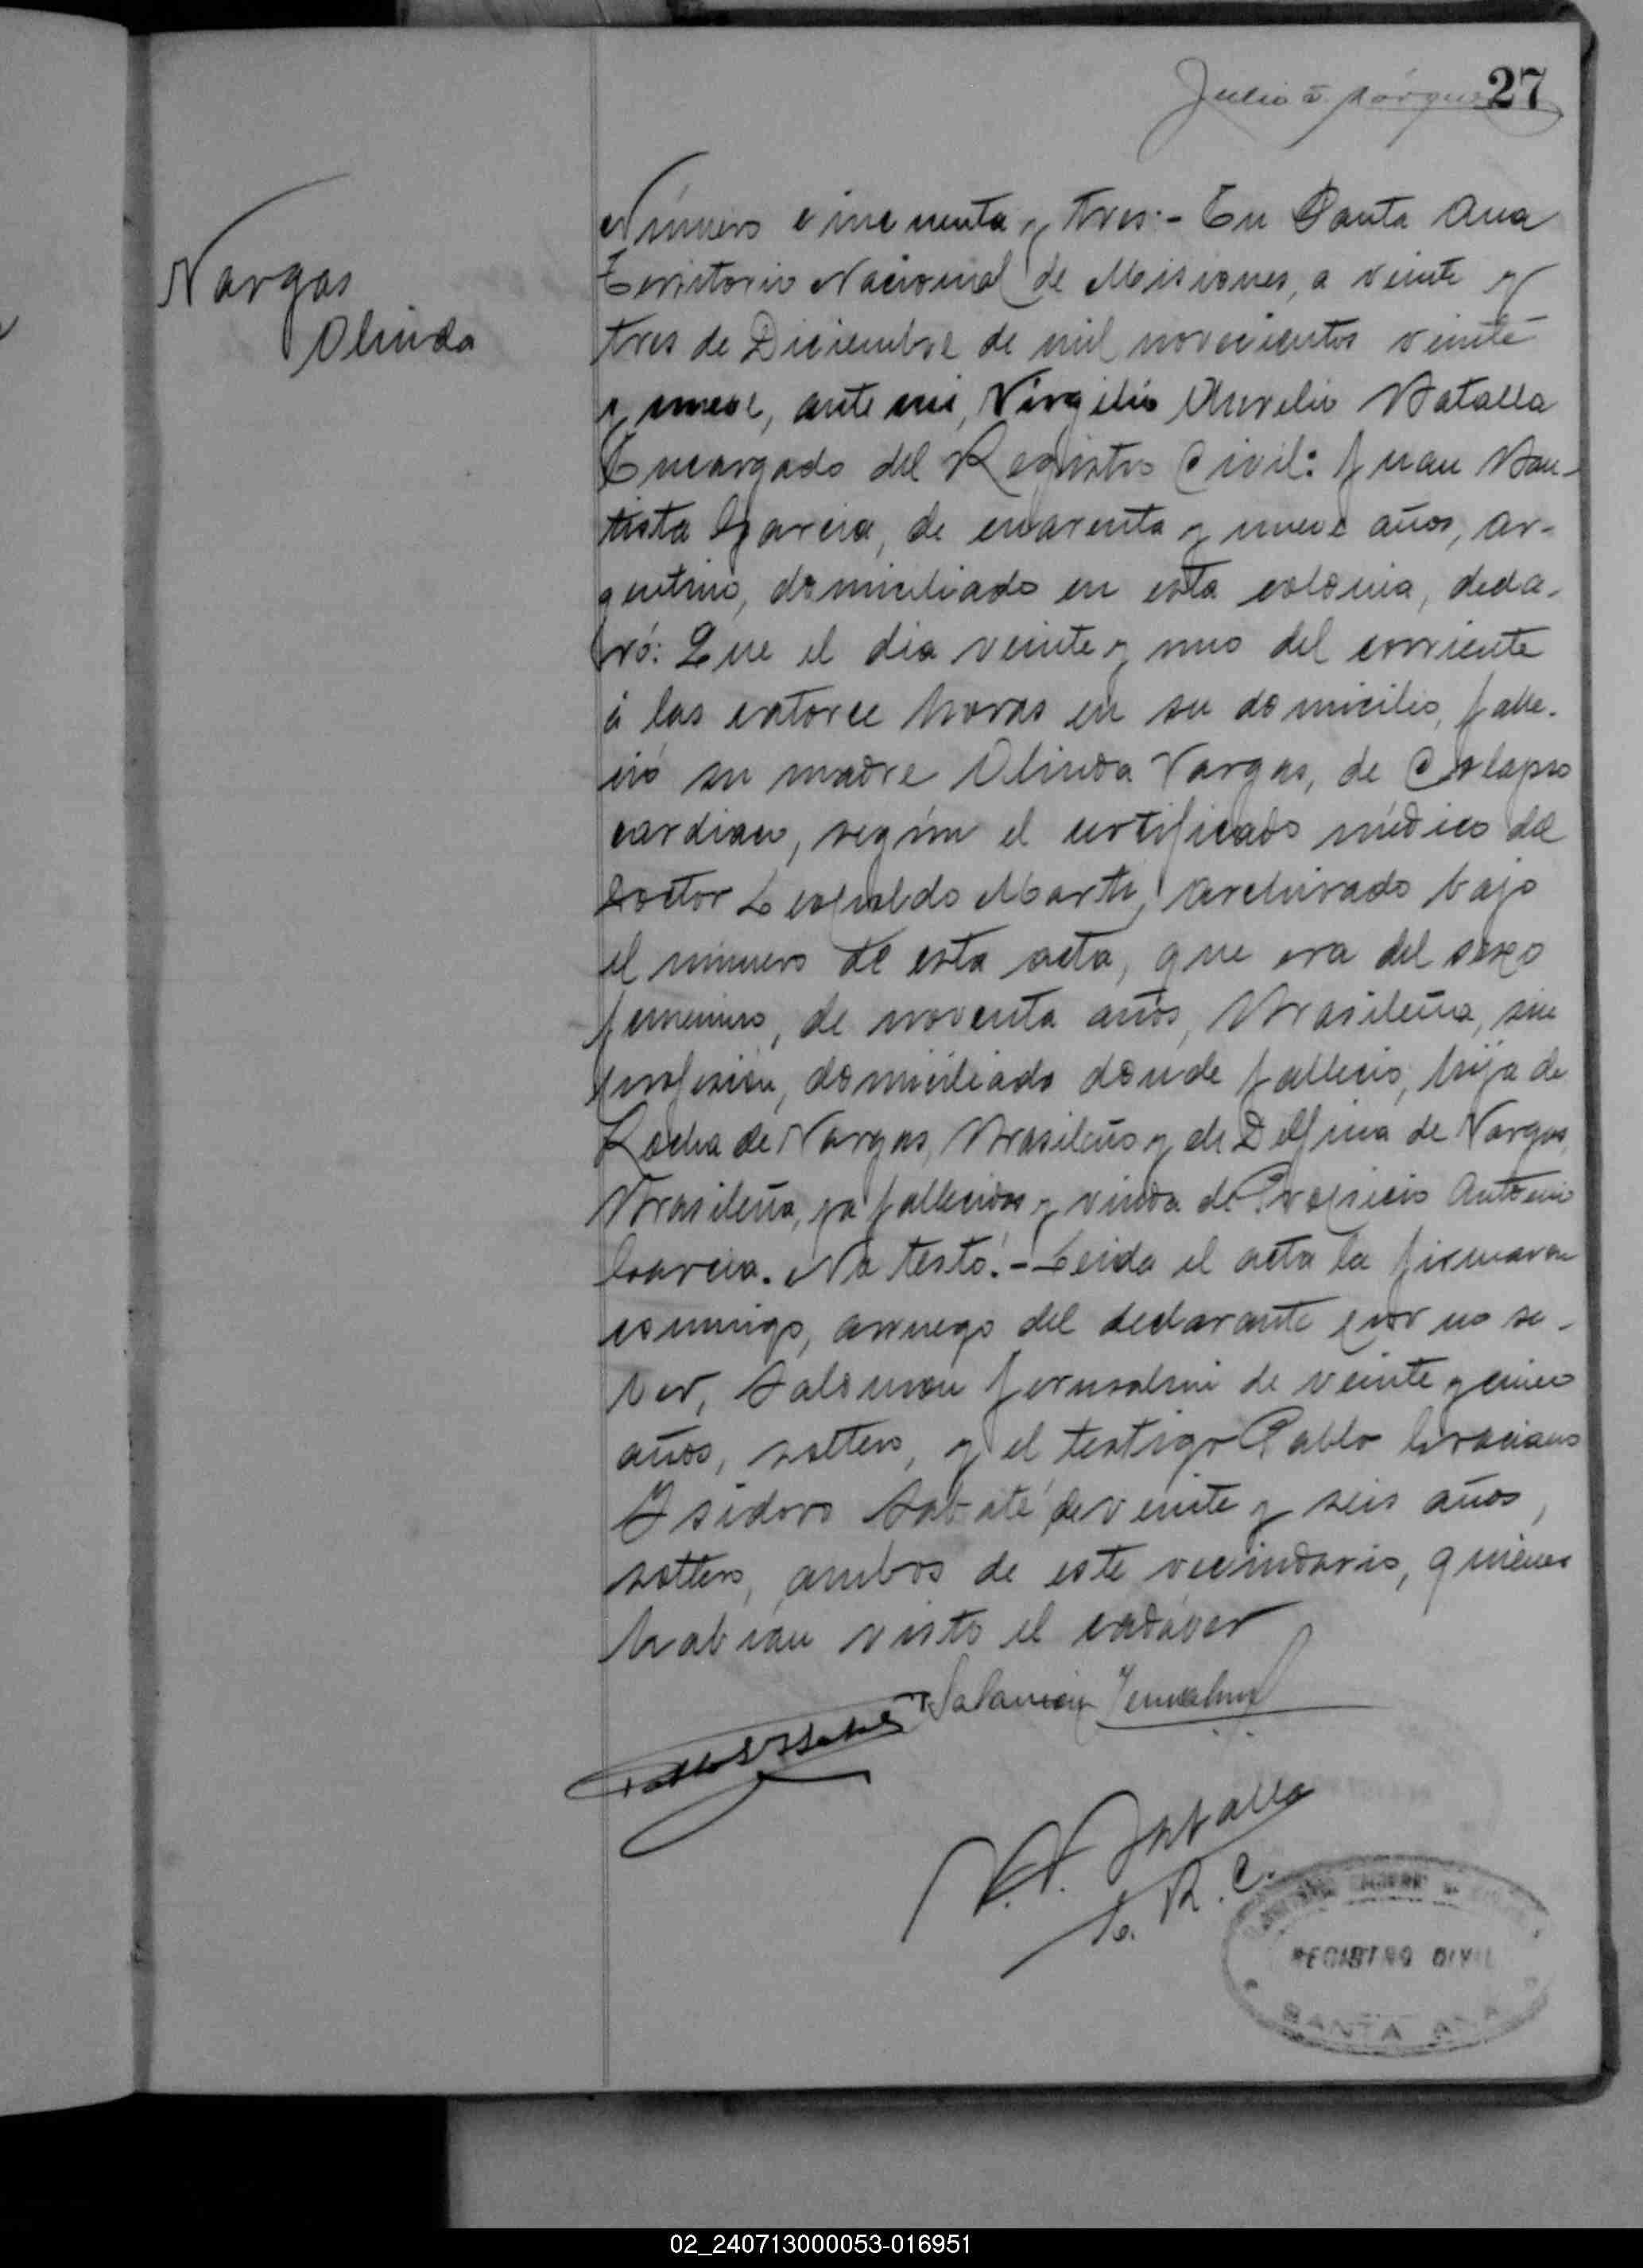 27
Vargas
Olinda
Número cincuenta y tres.- En Santa Ana
Territorio Nacional de Misiones, a veinte y
tres de Diciembre de mil novecientos veinte
y nueve, ante mi, Virgilio Aurelio Batalla
Encargado del Registro Civil: Juan Bau-
tista Garcia, de cuarenta y nueve años, ar-
gentino, domiciliado en esta colonia, decla-
ró: Que el dia veinte y uno del corriente
á las catorce horas en su domicilio, falle-
ció su madre Olinda Vargas, de Colapso
cardiaco, según el certificado médico del
Doctor Leopoldo Marti, archivado bajo
el número de esta acta, que era del sexo
femenino, de noventa años, Brasileña, sin
profesión, domiciliado donde falleció, hija de
Rocha de Vargas, Brasileño y de Delfina de Vargas,
Brasileña, ya fallecidos y viuda de Propicio Antonio
Garcia. No testó.- Leida el acta la firmaron
conmigo, arruego del declarante por no sa-
ber, Salomón Jerusalmi de veinte y cinco
años, soltero, y el testigo Pablo Graciano
Isidoro Sabaté de veinte y seis años,
soltero, ambos de este vecindario, quienes
habian visto el cadáver
Salomón Jerusalmi
V. A. Batalla
E. R. C.
REGISTRO CIVIL
SANTA ANA
02_240713000053-016951